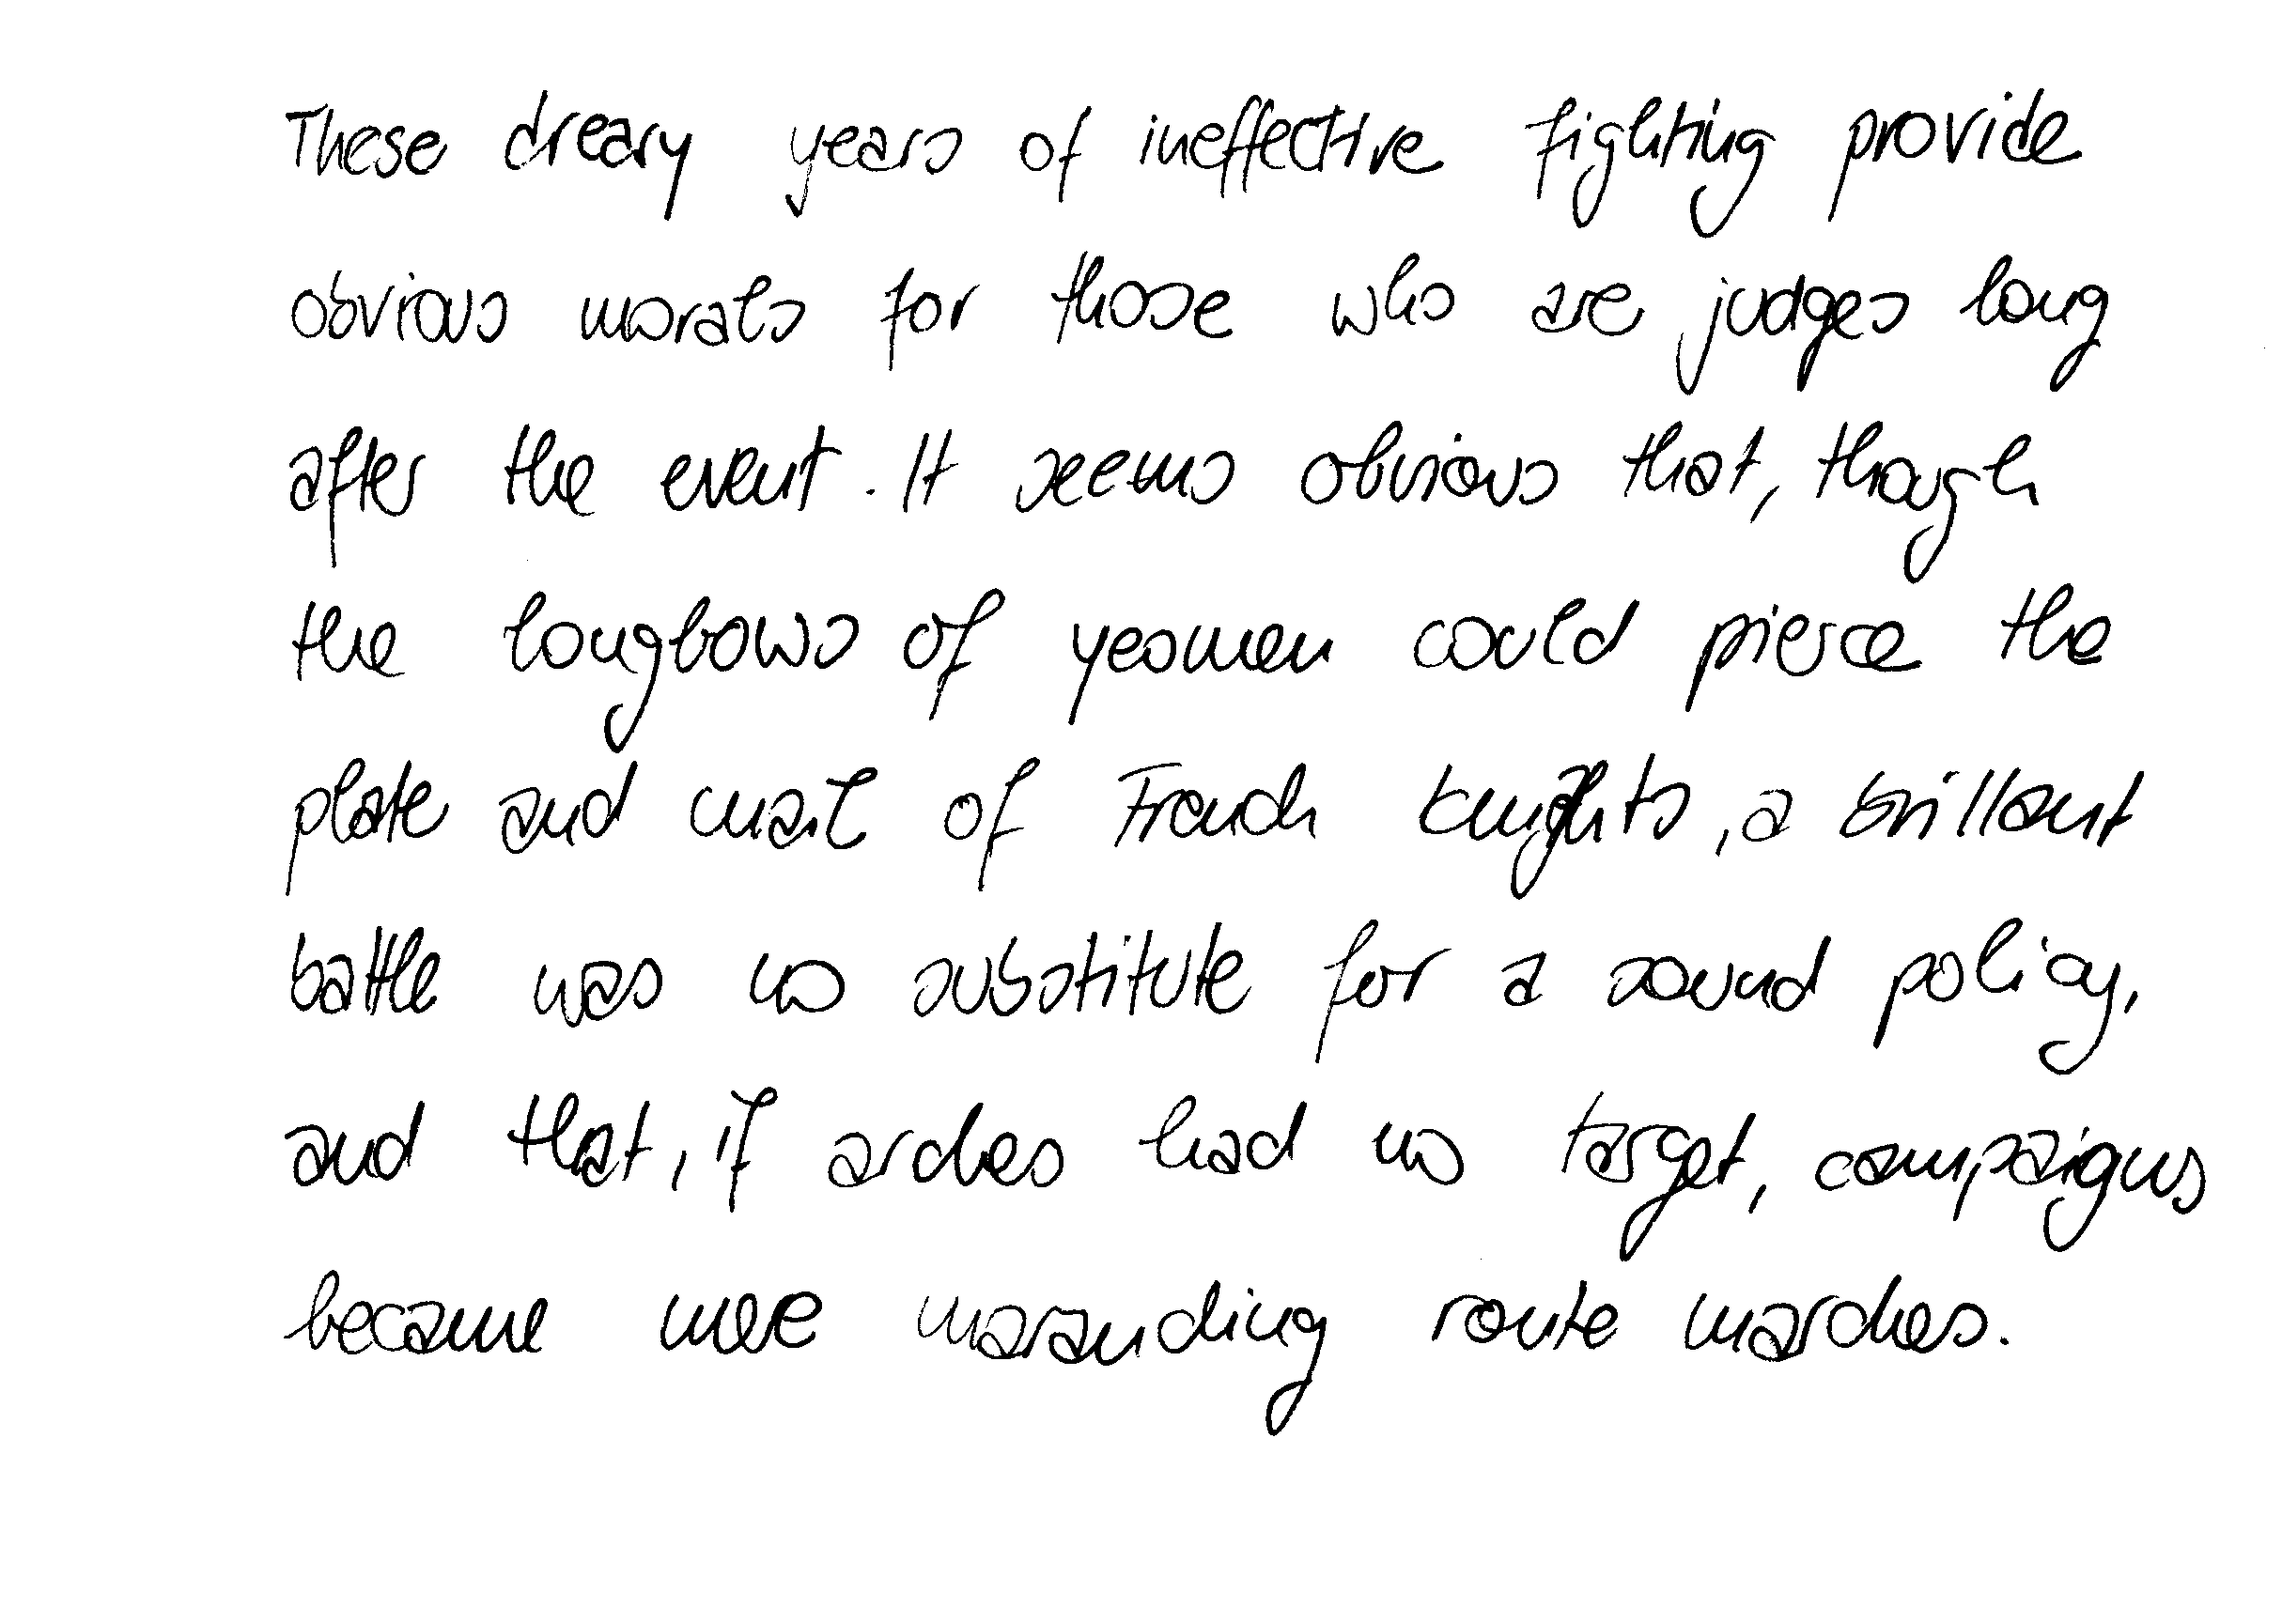 These dreary years of ineffective fighting provide
obvious morals for those who are judges long
after the event. It seems obvious that, though
the longbows of yeomen could pierce the
plate and mail of French knights, a brilliant
battle was no substitute for a sound policy,
and that, if arches had no target, campaigns
became mere marauding route marches.